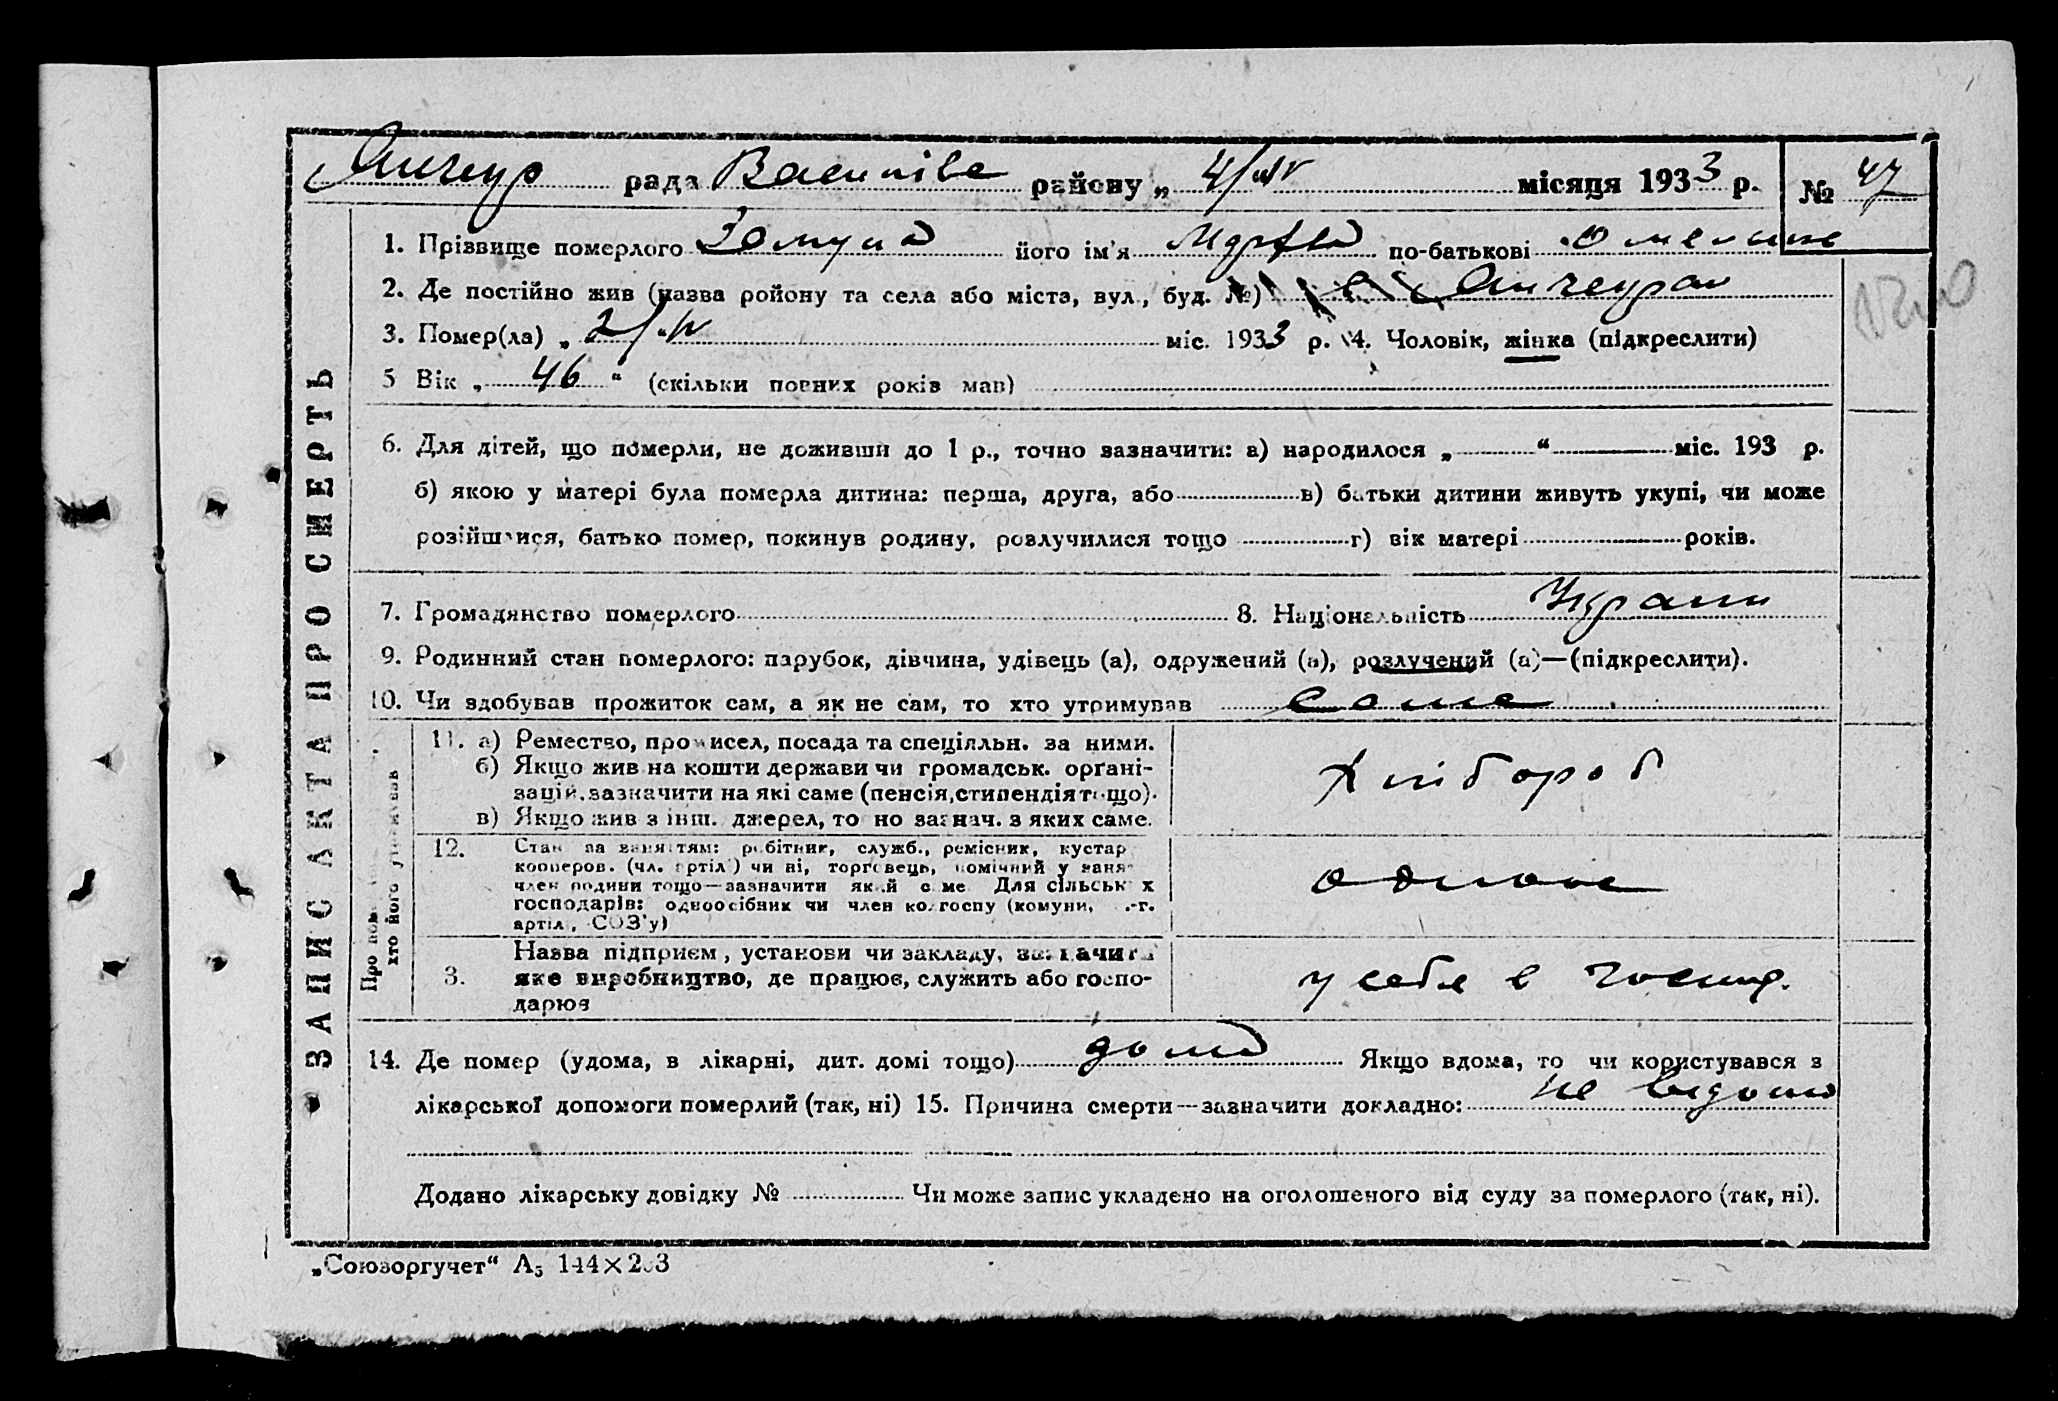 Янчекр рада Васильківс району „ 4/IV місяця 1933 р. № 47
1. Прізвище померлого його ім'я Марфа по-батькові Омельков
2. Де постійно жив (назва ройону та села або міста, вул., буд. №) с.
3. Помер(ла) „ 2/IV міс. 1933 р. 4. Чоловік, жінка (підкреслити)
5 Вік „ 46 “ (скільки повних років мав)
6. Для дітей, що померли, не доживши до 1 р., точно зазначити: а) народилося „ “ міс. 193 р.
б) якою у матері була померла дитина: перша, друга, або в) батьки дитини живуть укупі, чи може
розійшлися, батько помер, покинув родину, розлучилися тощо г) вік матері років.
7. Громадянство померлого 8. Національність Украин
9. Родинний стан померлого: парубок, дівчина, удівець (а), одружений (а), розлучений (а)—(підкреслити).
10. Чи здобував прожиток сам, а як не сам, то хто утримував сама
ЗАПИС АКТА ПРО СМЕРТЬ
Про пом хто його утримував
11. а) Ремество, промисел, посада та спеціяльн. за ними.
б) Якщо жив на кошти держави чи громадськ. орґані-
зацій, зазначити на які саме (пенсія, стипендія тощо).
в) Якщо жив з інш. джерел, то но зазнач. з яких саме.
хлібороб
12. Стан за заняттям: робітник, служб., ремісник, кустар
кооперов. (чл. артіл.) чи ні, торговець, помічний у заня
член родини тощо—зазначити який саме Для сільськ х
господарів: одноосібник чи член колгоспу (комуни, .-г.
артіл., СОЗ'у)
однос
3. Назва підприєм, установи чи закладу, зазначити
яке виробництво, де працює, служить або госпо-
дарює
у себе в госпд.
14. Де помер (удома, в лікарні, дит. домі тощо) дома Якщо вдома, то чи користувався з
лікарської допомоги померлий (так, ні) 15. Причина смерти—зазначити докладно: не відомо
Додано лікарську довідку № Чи може запис укладено на оголошеного від суду за померлого (так, ні).
„Союзоргучет“ А5 144×203